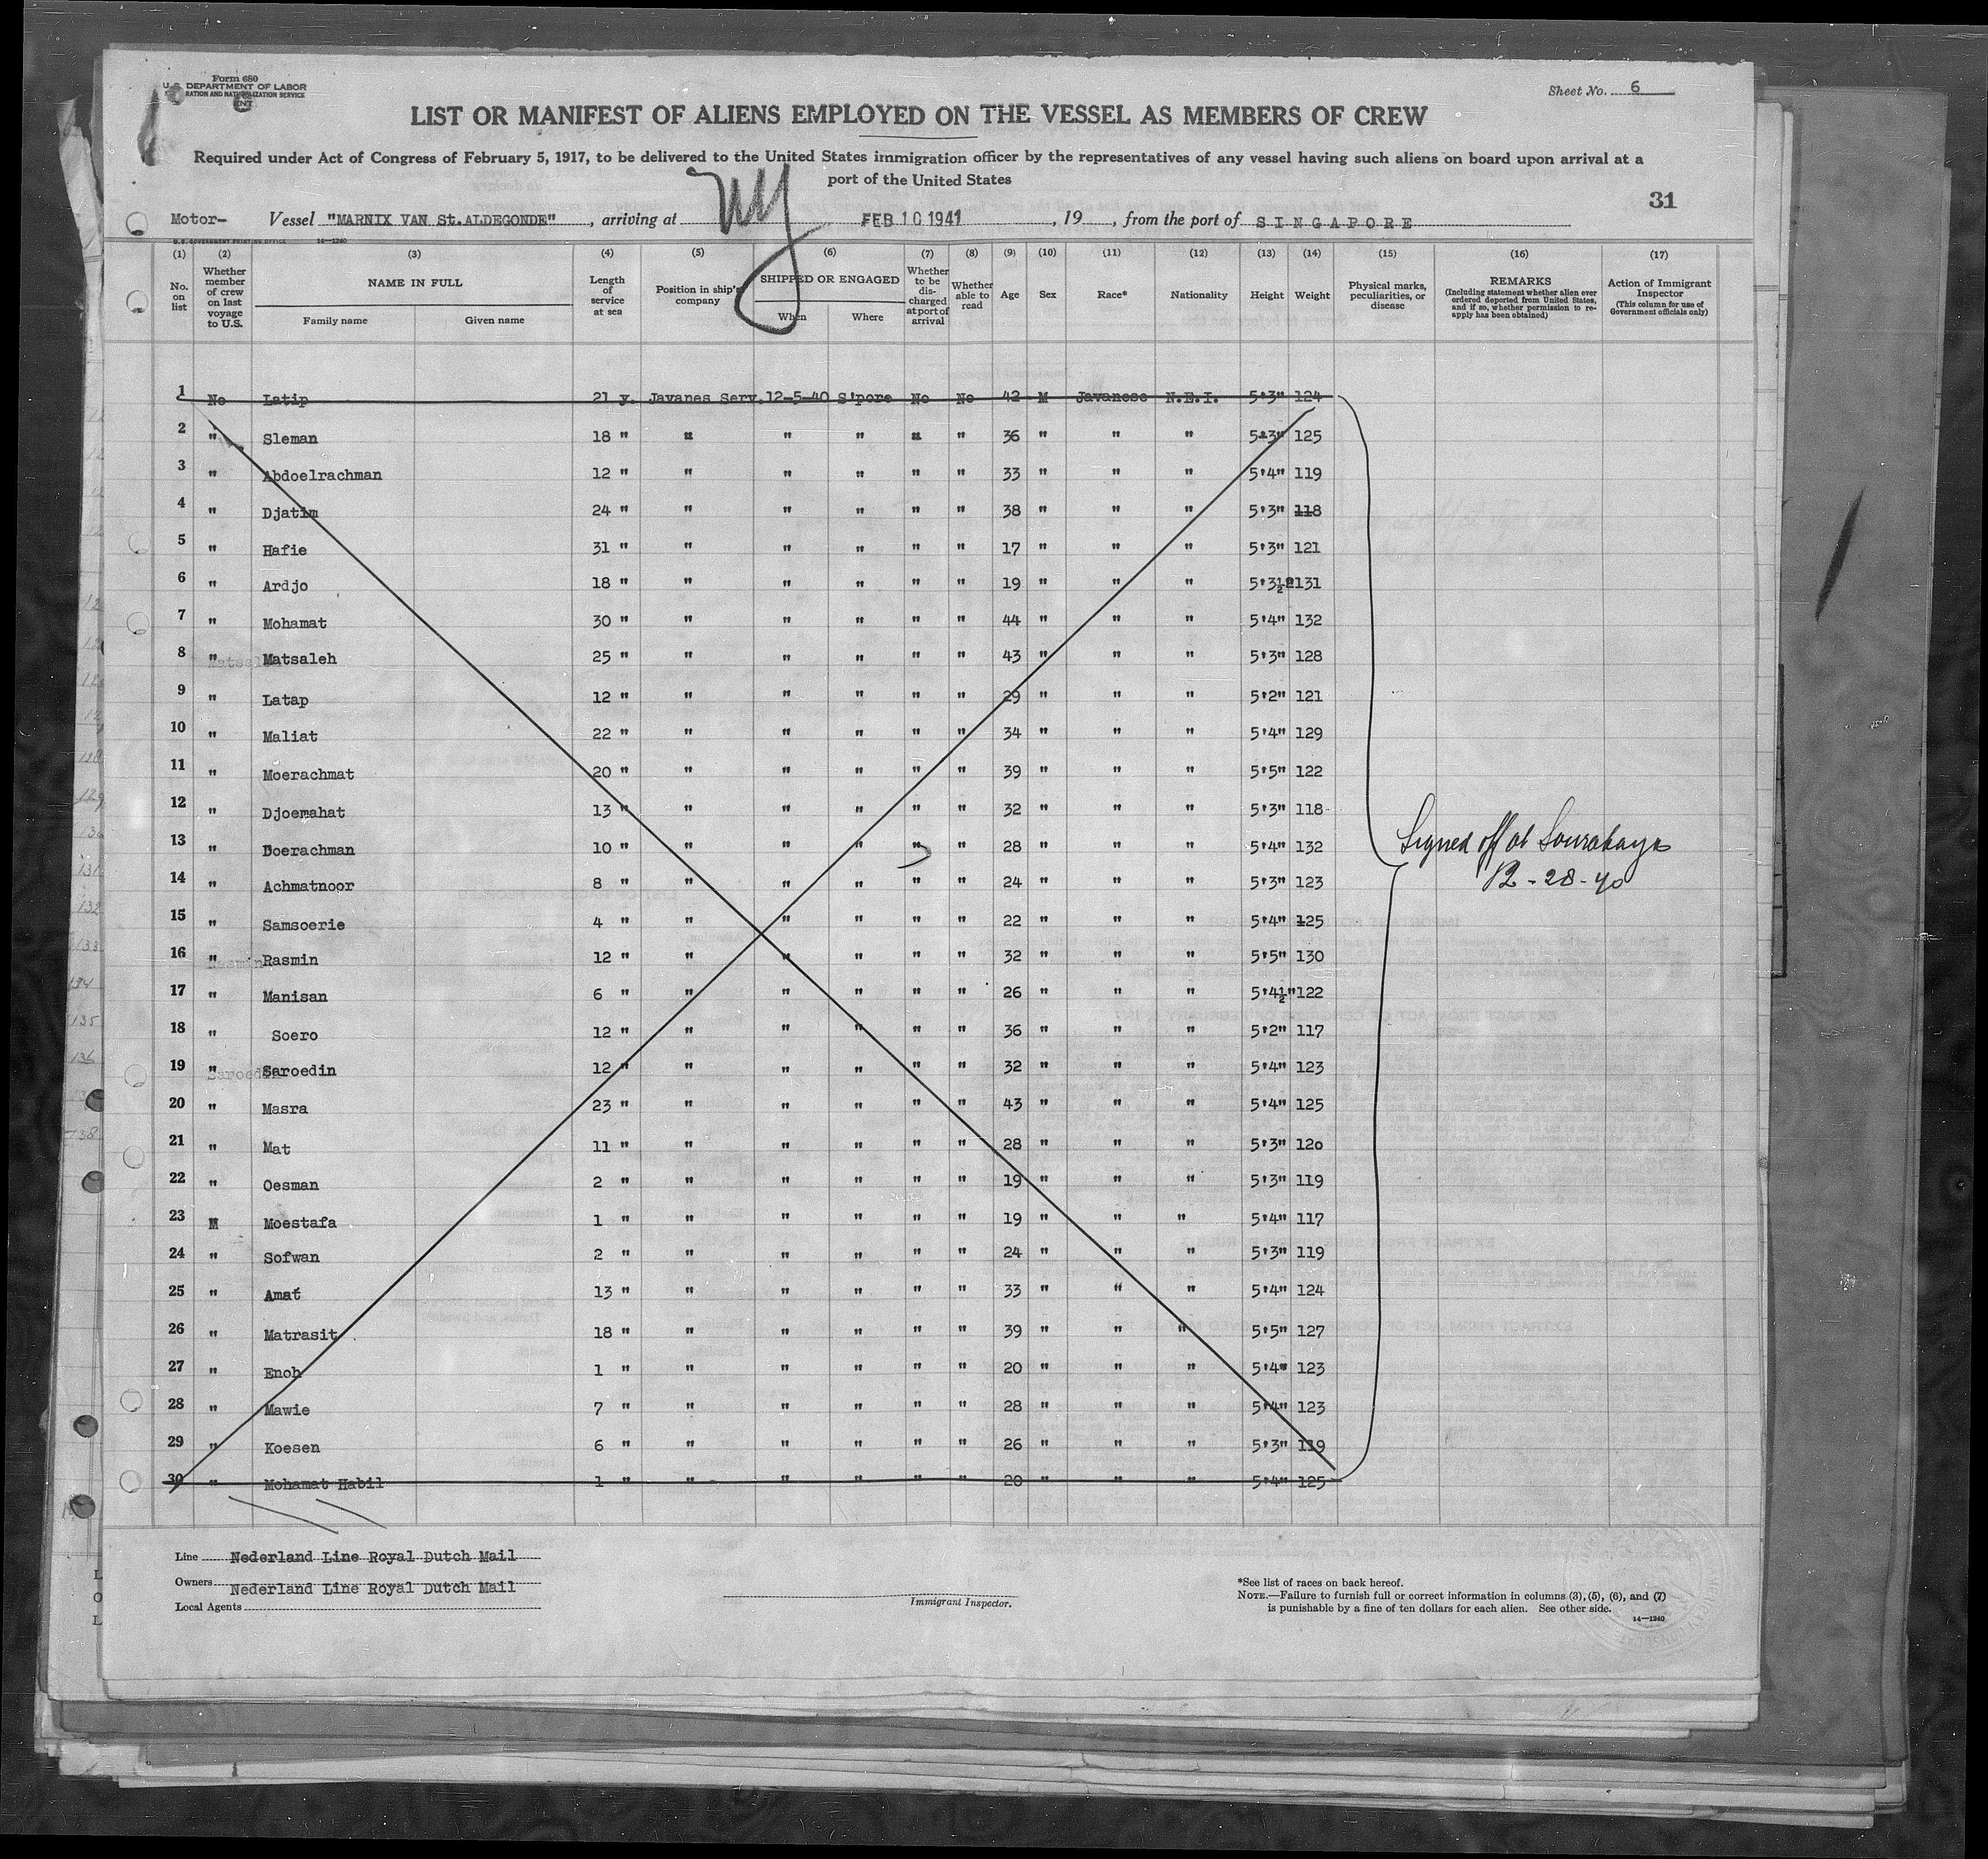 Form 680
U. S. DEPARTMENT OF LABOR
RATION AND NATURALIZATION SERVICE
Sheet No. 6
LIST OR MANIFEST OF ALIENS EMPLOYED ON THE VESSEL AS MEMBERS OF CREW
Required under Act of Congress of February 5, 1917, to be delivered to the United States immigration officer by the representatives of any vessel having such aliens on board upon arrival at a
port of the United States
31
Motor- Vessel "MARNIX VAN St.ALDEGONDE", arriving at NY FEB 10 1941, 19 , from the port of SINGAPORE
U.S. GOVERNMENT PRINTING OFFICE 14—1240
(1) (2) (3) (4) (5) (6) (7) (8) (9) (10) (11) (12) (13) (14) (15) (16) (17)
No. on list
Whether member of crew on last voyage to U.S.
NAME IN FULL
Family name Given name
Length of service at sea
Position in ship's company
SHIPPED OR ENGAGED
When Where
Whether to be discharged at port of arrival
Whether able to read
Age
Sex
Race*
Nationality
Height
Weight
Physical marks, peculiarities, or disease
REMARKS
(Including statement whether alien ever ordered deported from United States, and if so, whether permission to reapply has been obtained)
Action of Immigrant Inspector
(This column for use of Government officials only)
1 No Latip 21 y. Javanes Serv. 12-5-40 S'pore No No 42 M Javanese N.E.I. 5'3" 124
2 " Sleman 18 " " " " " " 36 " " " 5'3" 125
3 " Abdoelrachman 12 " " " " " " 33 " " " 5'4" 119
4 " Djatim 24 " " " " " " 38 " " " 5'3" 118
5 " Hafie 31 " " " " " " 17 " " " 5'3" 121
6 " Ardjo 18 " " " " " " 19 " " " 5'3½" 131
7 " Mohamat 30 " " " " " " 44 " " " 5'4" 132
8 " Matsaleh 25 " " " " " " 43 " " " 5'3" 128
9 " Latap 12 " " " " " " 29 " " " 5'2" 121
10 " Maliat 22 " " " " " " 34 " " " 5'4" 129
11 " Moerachmat 20 " " " " " " 39 " " " 5'5" 122
12 " Djoemahat 13 " " " " " " 32 " " " 5'3" 118
13 " Doerachman 10 " " " " " " 28 " " " 5'4" 132
Signed off at Sourabaya
14 " Achmatnoor 8 " " " " " " 24 " " " 5'3" 123
12-28-40
15 " Samsoerie 4 " " " " " " 22 " " " 5'4" 125
16 " Rasmin 12 " " " " " " 32 " " " 5'5" 130
17 " Manisan 6 " " " " " " 26 " " " 5'4½" 122
18 " Soero 12 " " " " " " 36 " " " 5'2" 117
19 " Saroedin 12 " " " " " " 32 " " " 5'4" 123
20 " Masra 23 " " " " " " 43 " " " 5'4" 125
21 " Mat 11 " " " " " " 28 " " " 5'3" 120
22 " Oesman 2 " " " " " " 19 " " " 5'3" 119
23 " Moestafa 1 " " " " " " 19 " " " 5'4" 117
24 " Sofwan 2 " " " " " " 24 " " " 5'3" 119
25 " Amat 13 " " " " " " 33 " " " 5'4" 124
26 " Matrasit 18 " " " " " " 39 " " " 5'5" 127
27 " Enoh 1 " " " " " " 20 " " " 5'4" 123
28 " Mawie 7 " " " " " " 28 " " " 5'4" 123
29 " Koesen 6 " " " " " " 26 " " " 5'3" 119
30 " Mohamat Habil 1 " " " " " " 20 " " " 5'4" 125
Line Nederland Line Royal Dutch Mail
Owners Nederland Line Royal Dutch Mail
Local Agents
Immigrant Inspector.
*See list of races on back hereof.
NOTE.—Failure to furnish full or correct information in columns (3), (5), (6), and (7)
is punishable by a fine of ten dollars for each alien. See other side.
14—1240